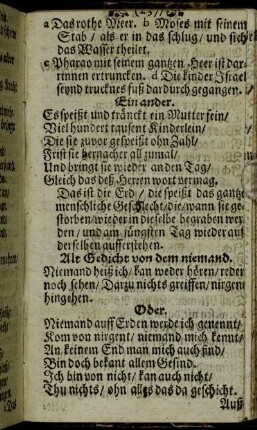 a Das rothe Meer. b Moses mit seinem
Stab / als er in das schlug / und sich
das Wasser theilet.
c Pharao mit seinem gantzen Heer ist dar-
rinnen ertruncken. d Die kinder Israel
seynd trucknes fuß dardurch gegangen.
Ein ander.
Es speißt und tränckt ein Mutter fein /
Viel hundert tausent Kinderlein /
Die sie zuvor gespeißt ohn Zahl /
Frist sie hernacher all zumal /
Und bringt sie wieder an den Tag /
Gleich das deß Herren wort vermag.
Das ist die Erd / die speißt das gantze
menschliche Geschlecht / die / wann sie ge-
storben / wieder in dieselbe begraben wer-
den / und am jüngsten Tag wieder auß
derselben aufferstehen.
Alt Gedicht von dem niemand.
Niemand heiß ich / kan weder hören / reden
noch sehen / Darzu nichts greiffen / nirgent
hingehen.
Oder.
Niemand auff Erden werde ich genennt /
Kom von nirgent / niemand mich kennt /
An keinem End man mich auch find /
Bin doch bekant allem Gesind.
Ich bin von nicht / kan auch nicht /
Thu nichts / ohn alles das da geschicht.
Auß